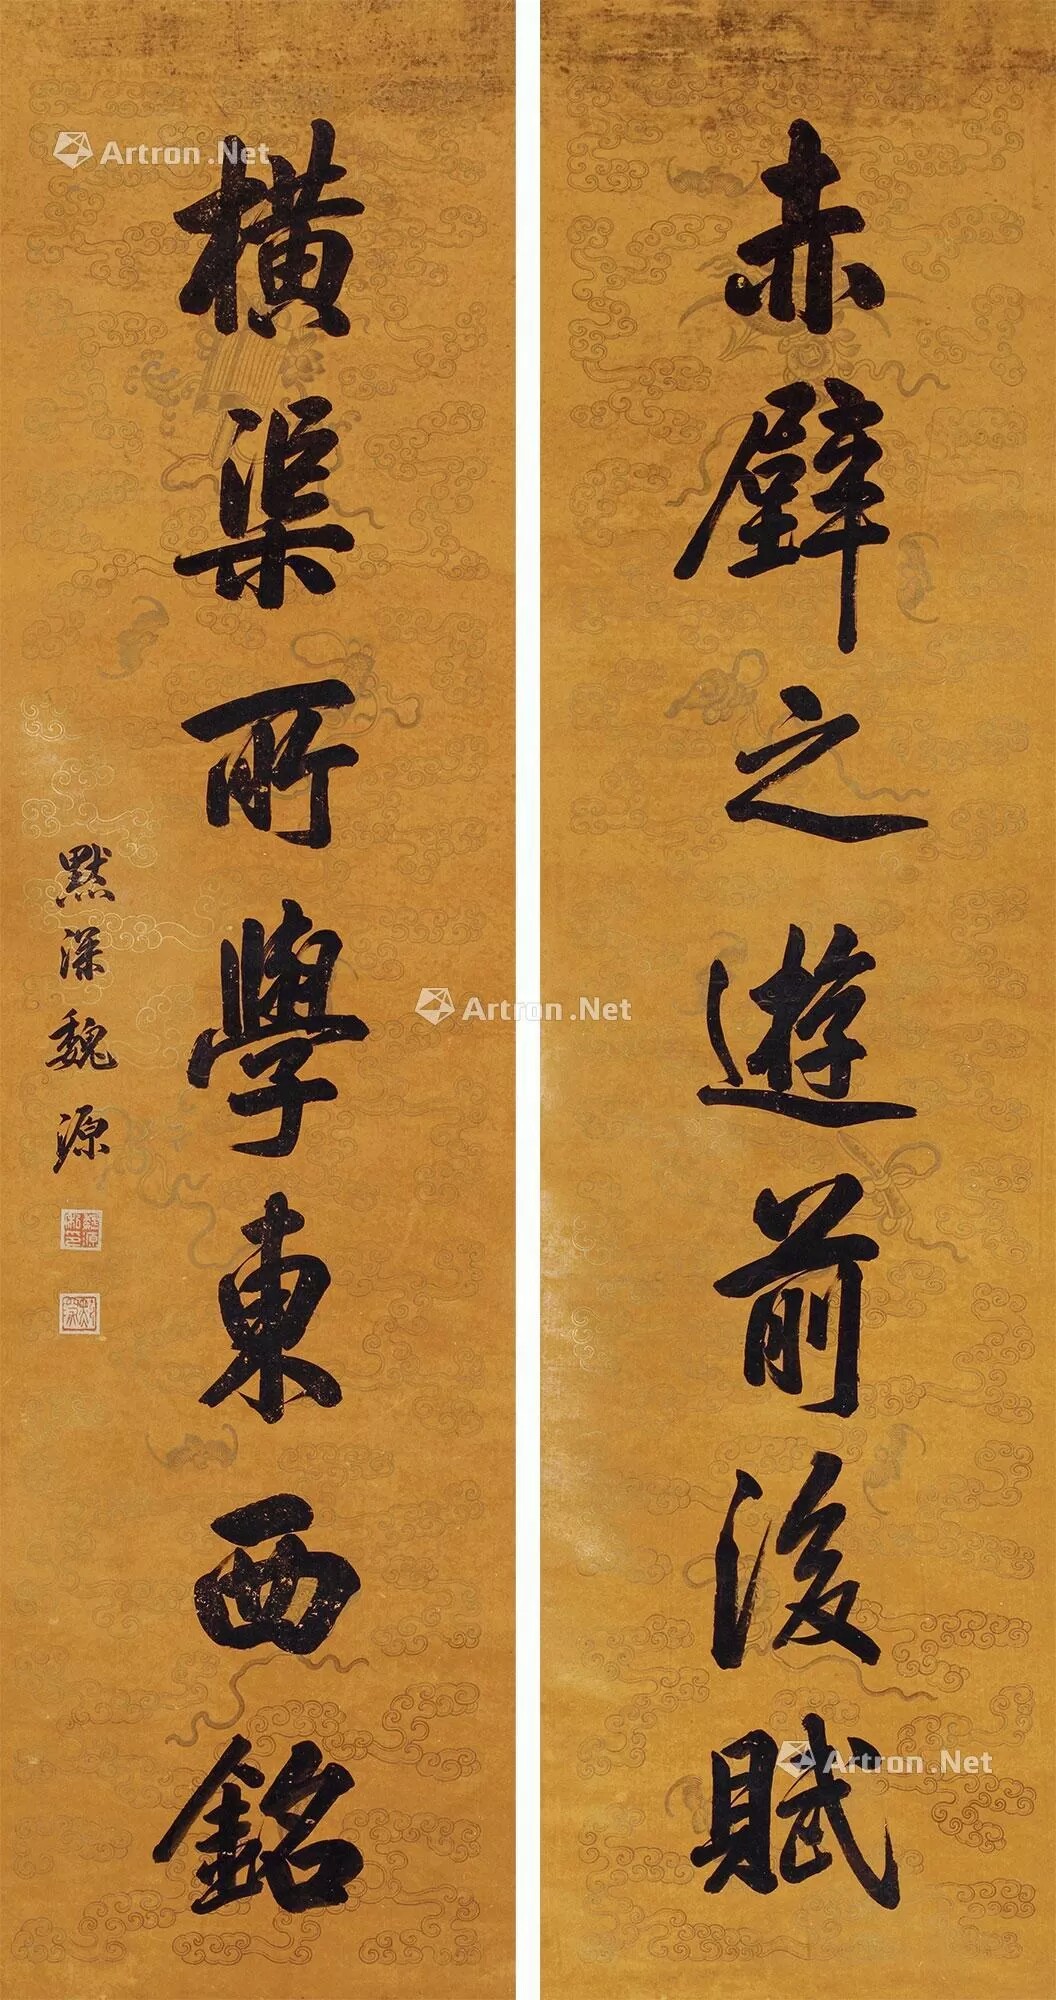 赤壁之遊前後賦
橫渠所學東西銘
默深魏源
魏源私印
默深
Artron.Net
Artron.Net
Artron.Net